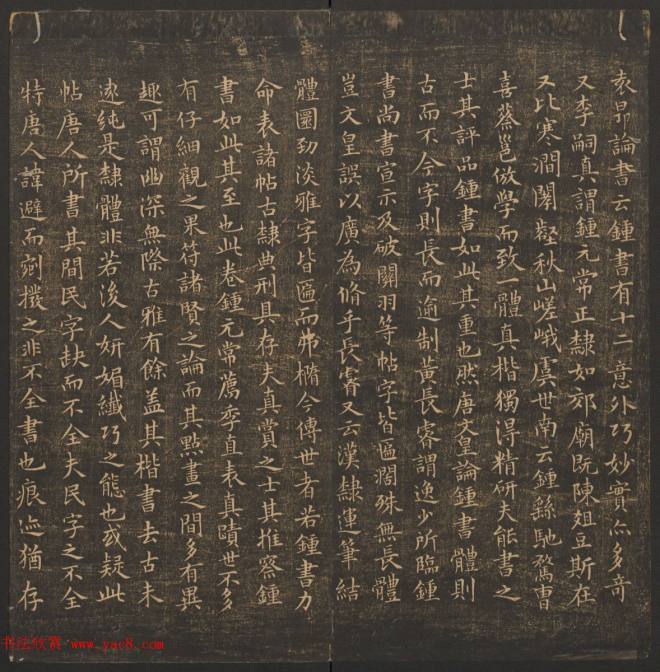 袁昂論書云鍾書有十二意外巧妙實亦多奇
又李嗣真謂鍾元常正隸如郊廟既陳俎豆斯在
又比寒澗闃壑秋山嵯峨虞世南云鍾繇馳騖曹
喜蔡邕倣學而致一體真楷獨得精研夫能書之
士其評品鍾書如此其重也然唐文皇論鍾書體則
古而不今字則長而逾制黃長睿謂逸少所臨鍾
書尚書宣示及破關羽等帖字皆匾闊殊無長體
豈文皇誤以廣為脩乎長睿又云漢隸運筆結
體圜劲淡雅字皆匾而弗橢今傳世者若鍾書力
命表諸帖古隸典刑具存夫真賞之士其推察鍾
書如此其至也此卷鍾元常薦季直表真蹟世不多
有仔細觀之果符諸賢之論而其點畫之間多有異
趣可謂幽深無際古雅有餘蓋其楷書去古未
遠純是隸體非若後人妍媚纖巧之態也或疑此
帖唐人所書其間民字缺而不全夫民字之不全
特唐人諱避而剜擾之非不全書也痕迹猶存
书法欣赏 www.yac8.com